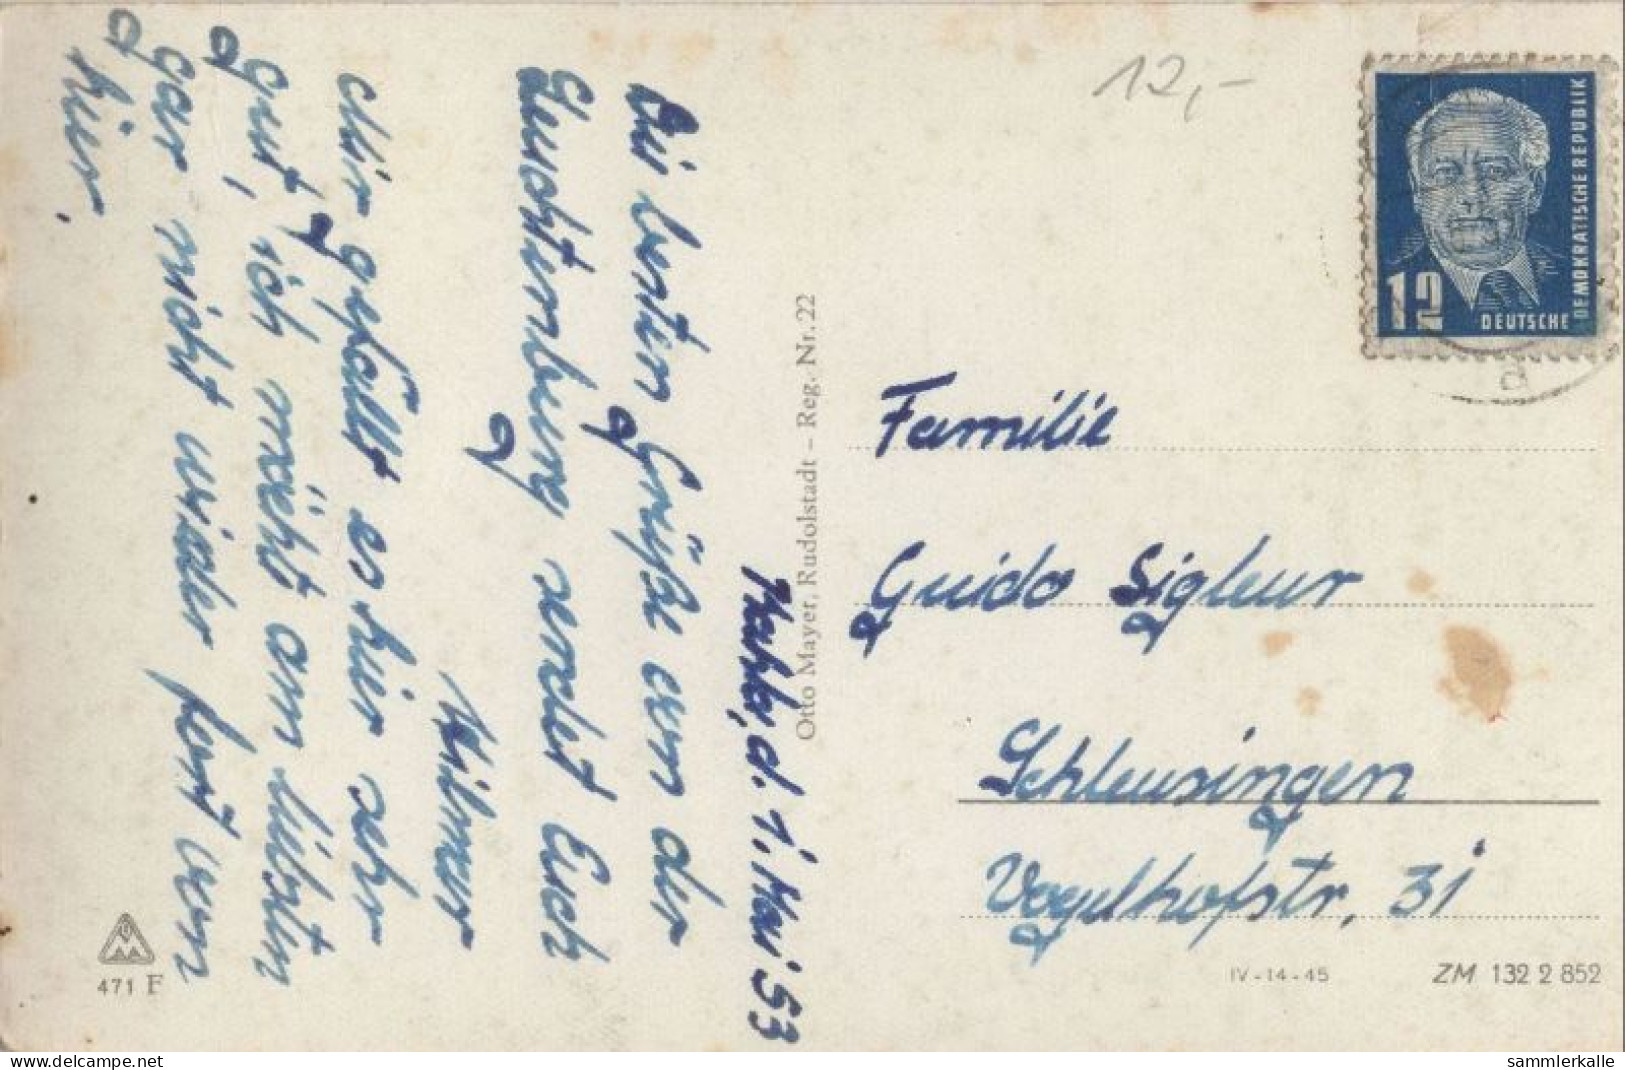 Kahla, d. 1. Mai 53
Die besten Grüße von der
Leuchtenburg sendet Euch
Hilmar
Mir gefällt es hier sehr
gut, ich möcht am liebsten
gar nicht wieder fort von
hier.
12,-
12
DEUTSCHE
DEMOKRATISCHE REPUBLIK
Familie
Guido Sigleur
Schleusingen
Vogelhofstr. 31
Otto Mayer, Rudolstadt - Reg. Nr. 22
471 F
IV-14-45
ZM 132 2 852
www.delcampe.net
sammlerkalle